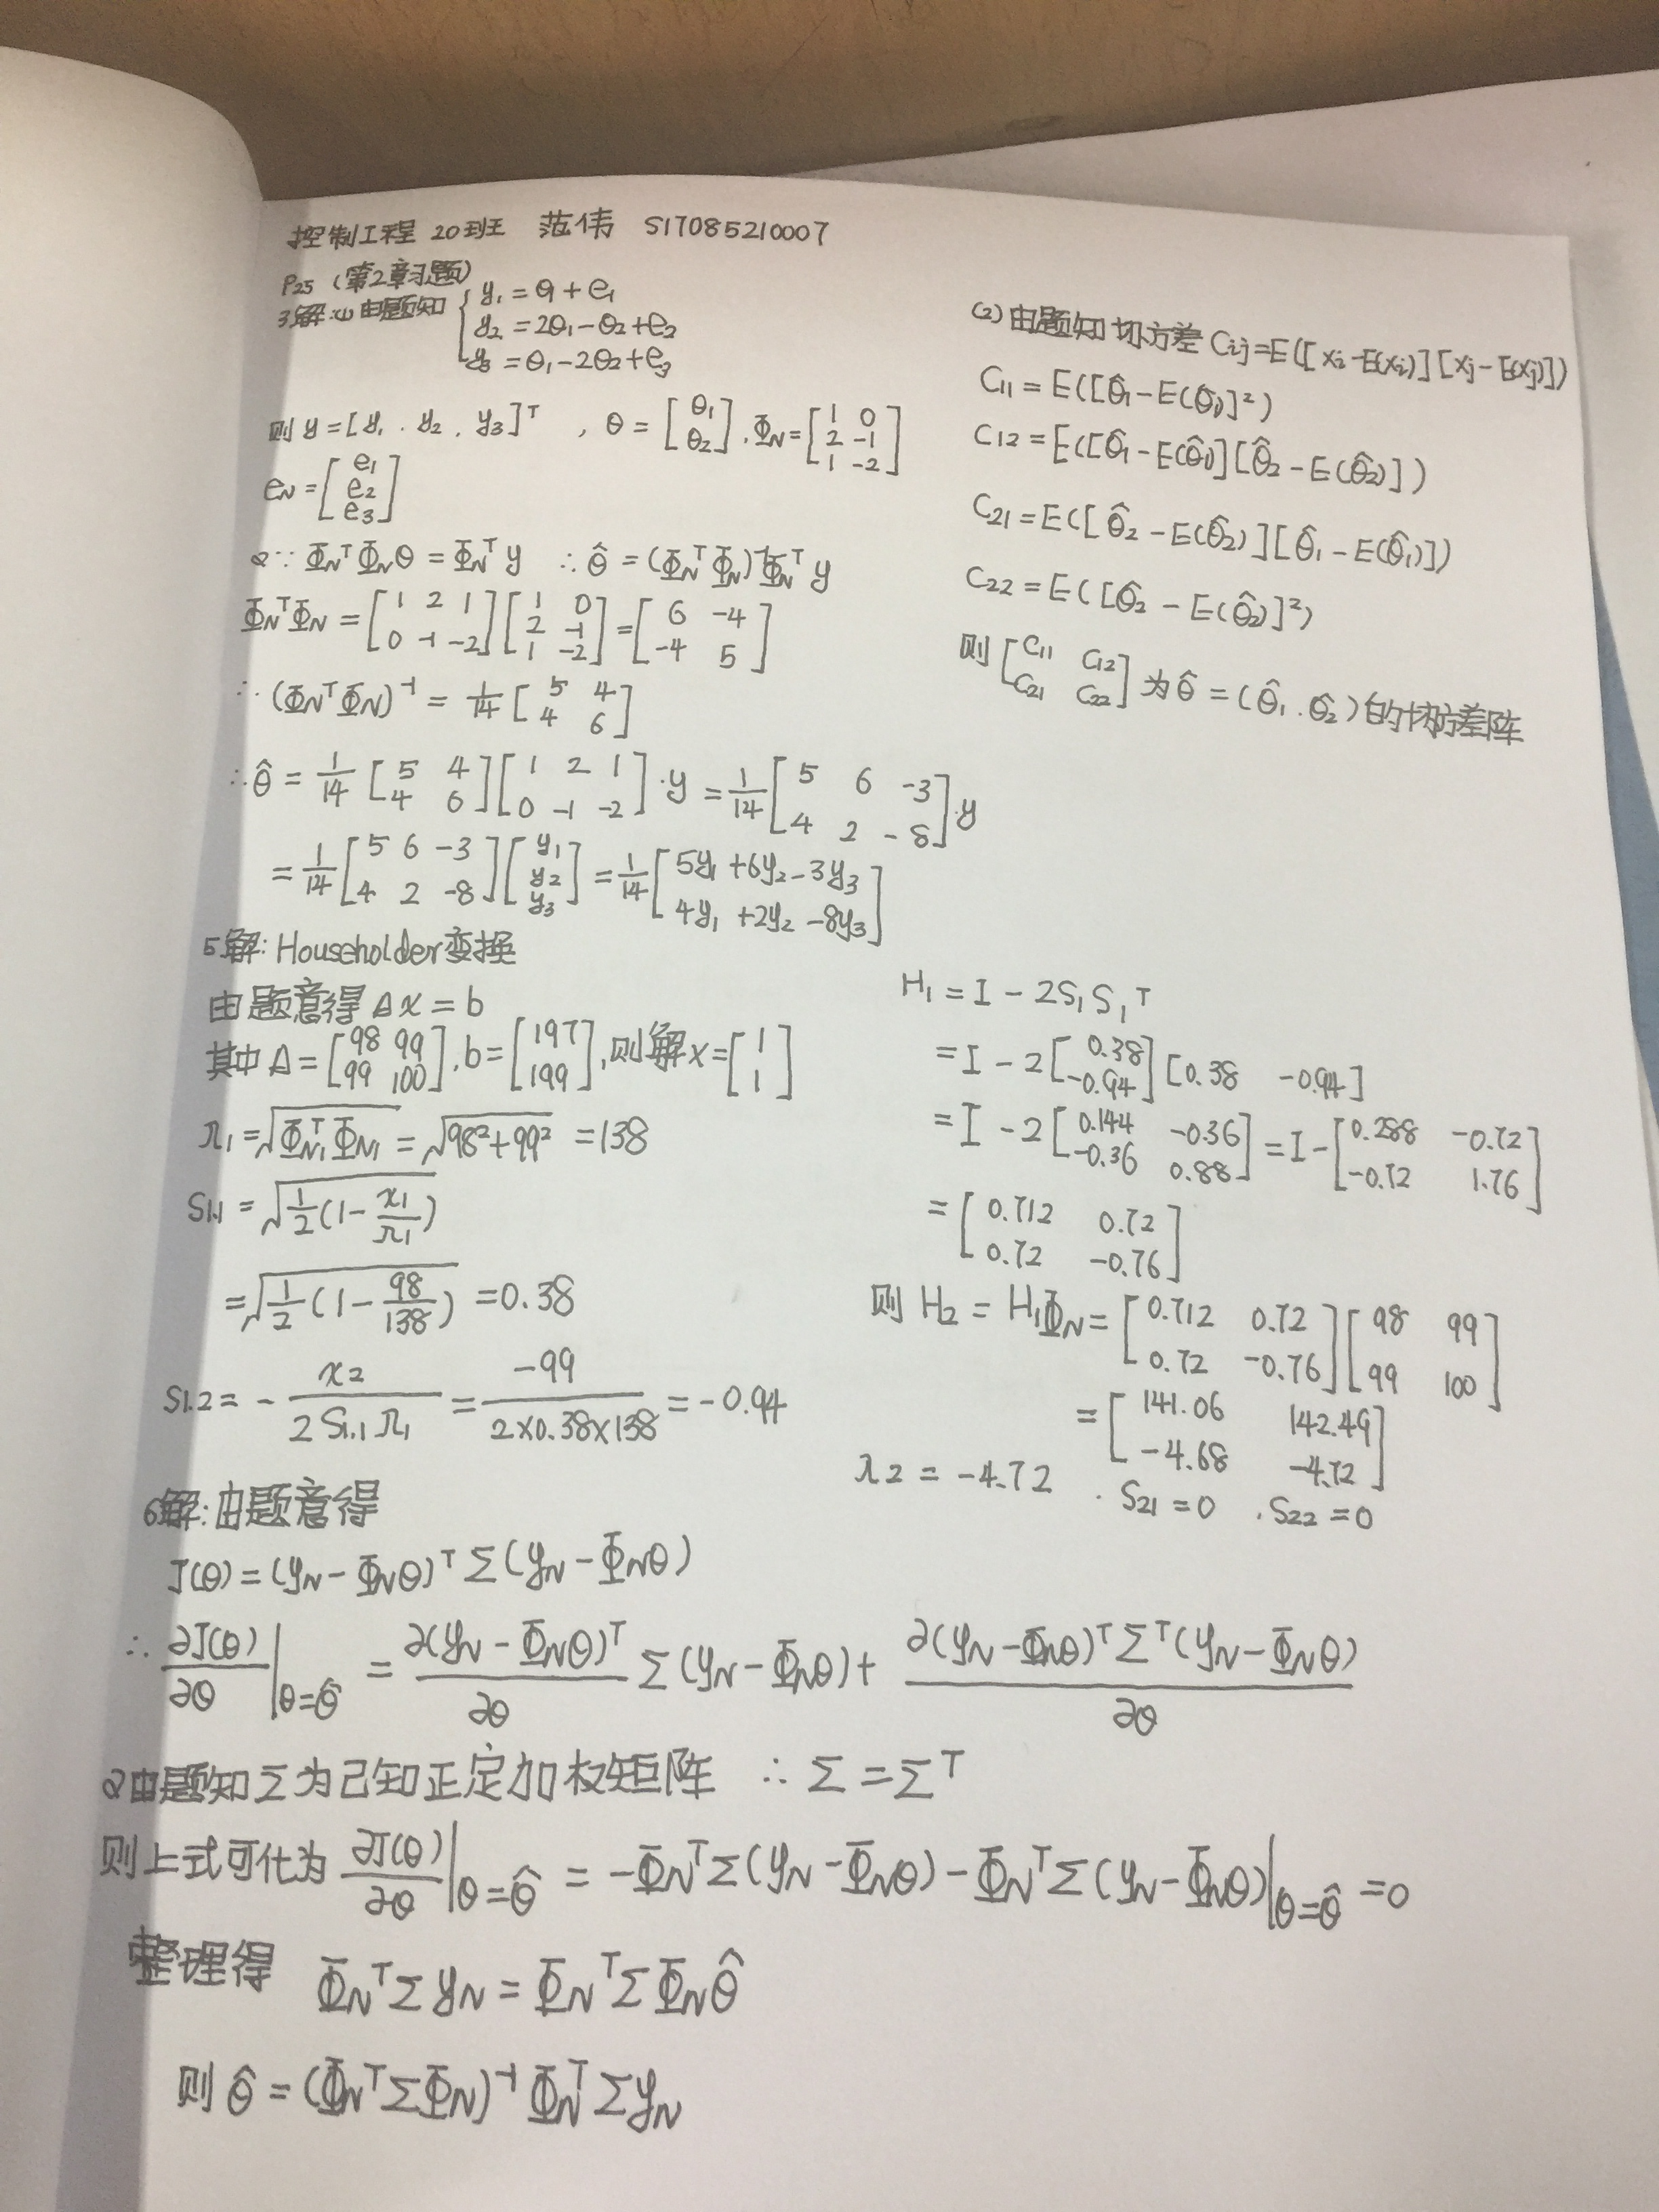 控制工程 20班 范伟 S17085210007
P25 (第2章习题)
3解:(1) 由题知 { y₁ = θ₁ + e₁
y₂ = 2θ₁ - θ₂ + e₂
y₃ = θ₁ - 2θ₂ + e₃
则 y = [y₁, y₂, y₃]ᵀ , θ = [θ₁; θ₂], Φ_N = [1 0; 2 -1; 1 -2]
e_N = [e₁; e₂; e₃]
又∵ Φ_NᵀΦ_Nθ = Φ_Nᵀy ∴ θ̂ = (Φ_NᵀΦ_N)⁻¹Φ_Nᵀy
Φ_NᵀΦ_N = [1 2 1; 0 -1 -2][1 0; 2 -1; 1 -2] = [6 -4; -4 5]
∴ (Φ_NᵀΦ_N)⁻¹ = 1/14 [5 4; 4 6]
∴ θ̂ = 1/14 [5 4; 4 6][1 2 1; 0 -1 -2]·y = 1/14 [5 6 -3; 4 2 -8]·y
= 1/14 [5 6 -3; 4 2 -8][y₁; y₂; y₃] = 1/14 [5y₁ + 6y₂ - 3y₃; 4y₁ + 2y₂ - 8y₃]
(2) 由题知 协方差 Cij = E([xi - E(xi)][xj - E(xj)])
C11 = E([θ̂₁ - E(θ̂₁)]²)
C12 = E([θ̂₁ - E(θ̂₁)][θ̂₂ - E(θ̂₂)])
C21 = E([θ̂₂ - E(θ̂₂)][θ̂₁ - E(θ̂₁)])
C22 = E([θ̂₂ - E(θ̂₂)]²)
则 [C11 C12; C21 C22] 为 θ̂ = (θ̂₁, θ̂₂) 的协方差阵
5解: Householder变换
由题意得 Ax = b
其中 A = [98 99; 99 100], b = [197; 199], 则解 x = [1; 1]
r₁ = √(Φ_N1ᵀΦ_N1) = √(98² + 99²) = 138
S1.1 = √(1/2(1 - x₁/r₁))
= √(1/2(1 - 98/138)) = 0.38
S1.2 = - x₂/(2S1.1 r₁) = -99/(2×0.38×138) = -0.94
H₁ = I - 2S₁S₁ᵀ
= I - 2[0.38; -0.94][0.38 -0.94]
= I - 2[0.144 -0.36; -0.36 0.88] = I - [0.288 -0.72; -0.72 1.76]
= [0.712 0.72; 0.72 -0.76]
则 H₂ = H₁Φ_N = [0.712 0.72; 0.72 -0.76][98 99; 99 100]
= [141.06 142.49; -4.68 -4.72]
r₂ = -4.72 , S21 = 0 , S22 = 0
6解: 由题意得
J(θ) = (y_N - Φ_Nθ)ᵀΣ(y_N - Φ_Nθ)
∴ ∂J(θ)/∂θ |θ=θ̂ = ∂(y_N - Φ_Nθ)ᵀ/∂θ Σ(y_N - Φ_Nθ) + ∂(y_N - Φ_Nθ)ᵀΣᵀ(y_N - Φ_Nθ)/∂θ
又由题知 Σ为已知正定加权矩阵 ∴ Σ = Σᵀ
则上式可化为 ∂J(θ)/∂θ |θ=θ̂ = -Φ_NᵀΣ(y_N - Φ_Nθ) - Φ_NᵀΣ(y_N - Φ_Nθ)|θ=θ̂ = 0
整理得 Φ_NᵀΣy_N = Φ_NᵀΣΦ_Nθ̂
则 θ̂ = (Φ_NᵀΣΦ_N)⁻¹Φ_NᵀΣy_N